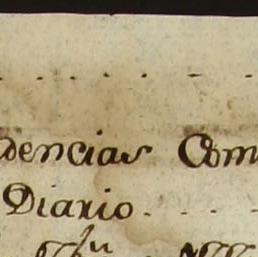 dencias Com
Diario